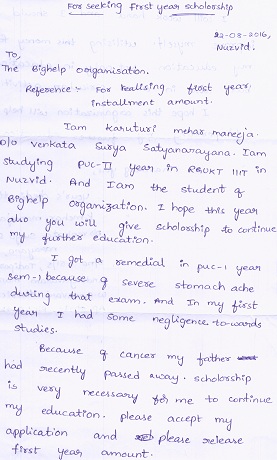 For seeking first year scholorship
22-03-2016,
Nuzvid.
To,
The Bighelp oorganisation.
Reference :- For Realising first year
installment amount.
Iam karuturi mehar maneeja.
D/o venkata Surya Satyanarayana. Iam
studying PUC-II year in RGUKT IIIT in
Nuzvid. And Iam the student of
Bighelp Oorganization. I hope this year
also you will give scholorship to continue
my further education.
I got a remedial in puc-1 year
sem-1 because of severe stomach ache
during that exam. And In my first
year I had some negligence to-wards
studies.
Because of cancer my father
had recently passed away. scholorship
is very necessary for me to continue
my education. please accept my
application and please release
first year amount.